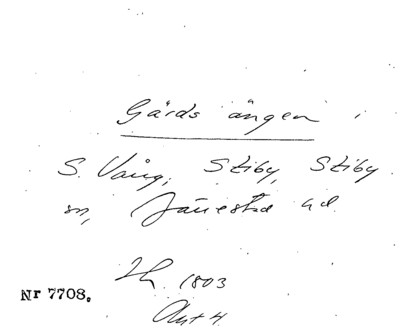 Gärds ängen i
S. Vång, Stiby, Stiby
sn, Järrestad hd.
1803
Akt 4.
Nr 7708.